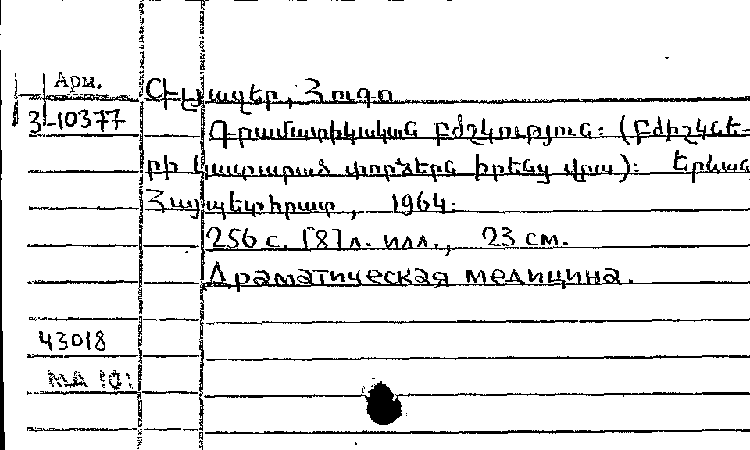 Арм.
Գլյազեր, Հուգո
3-10377
Դրամատիկական բժշկություն: (Բժիշկնե-
րի կատարած փորձերն իրենց վրա): Երևան
Հայպետհրատ, 1964:
256 с. [8] л. илл., 23 см.
Драматическая медицина.
43018